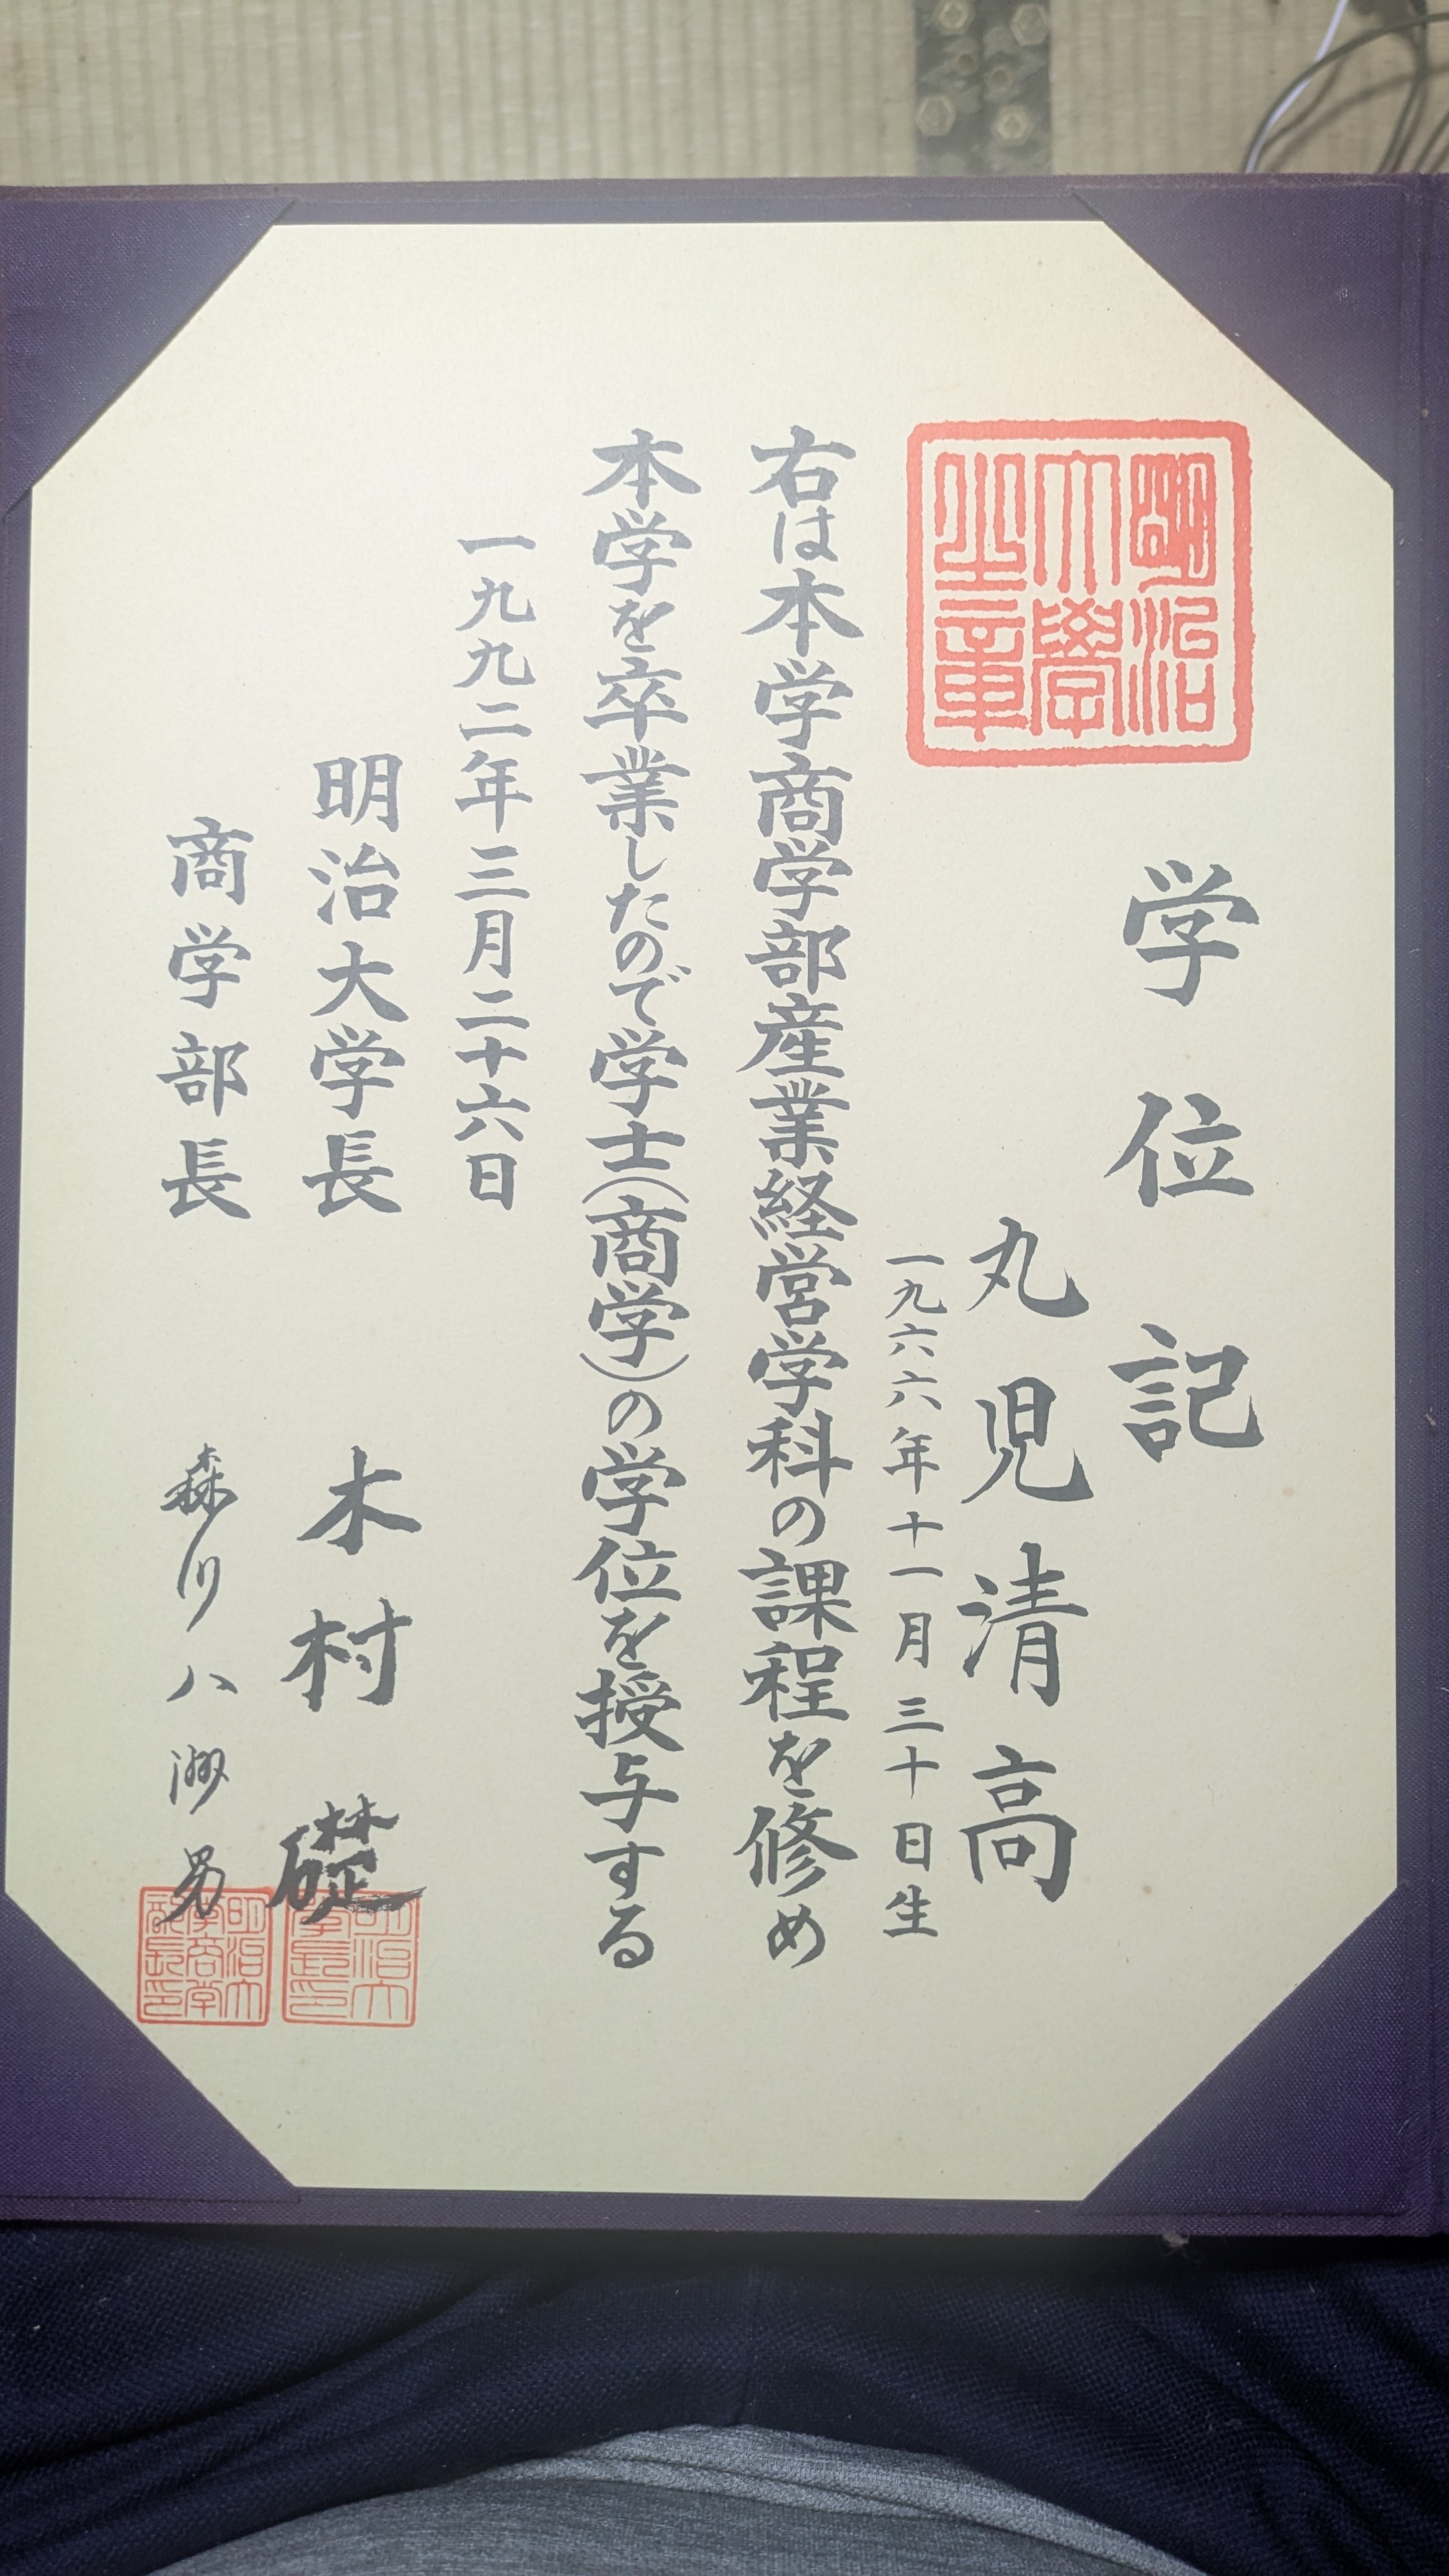 学位記
明治大学之章
丸児清高
一九六六年十一月三十日生
右は本学商学部産業経営学科の課程を修め
本学を卒業したので学士(商学)の学位を授与する
一九九二年三月二十六日
明治大学長 木村礎
商学部長 森川八洲男
明治大学長之印
明治大学商学部長之印